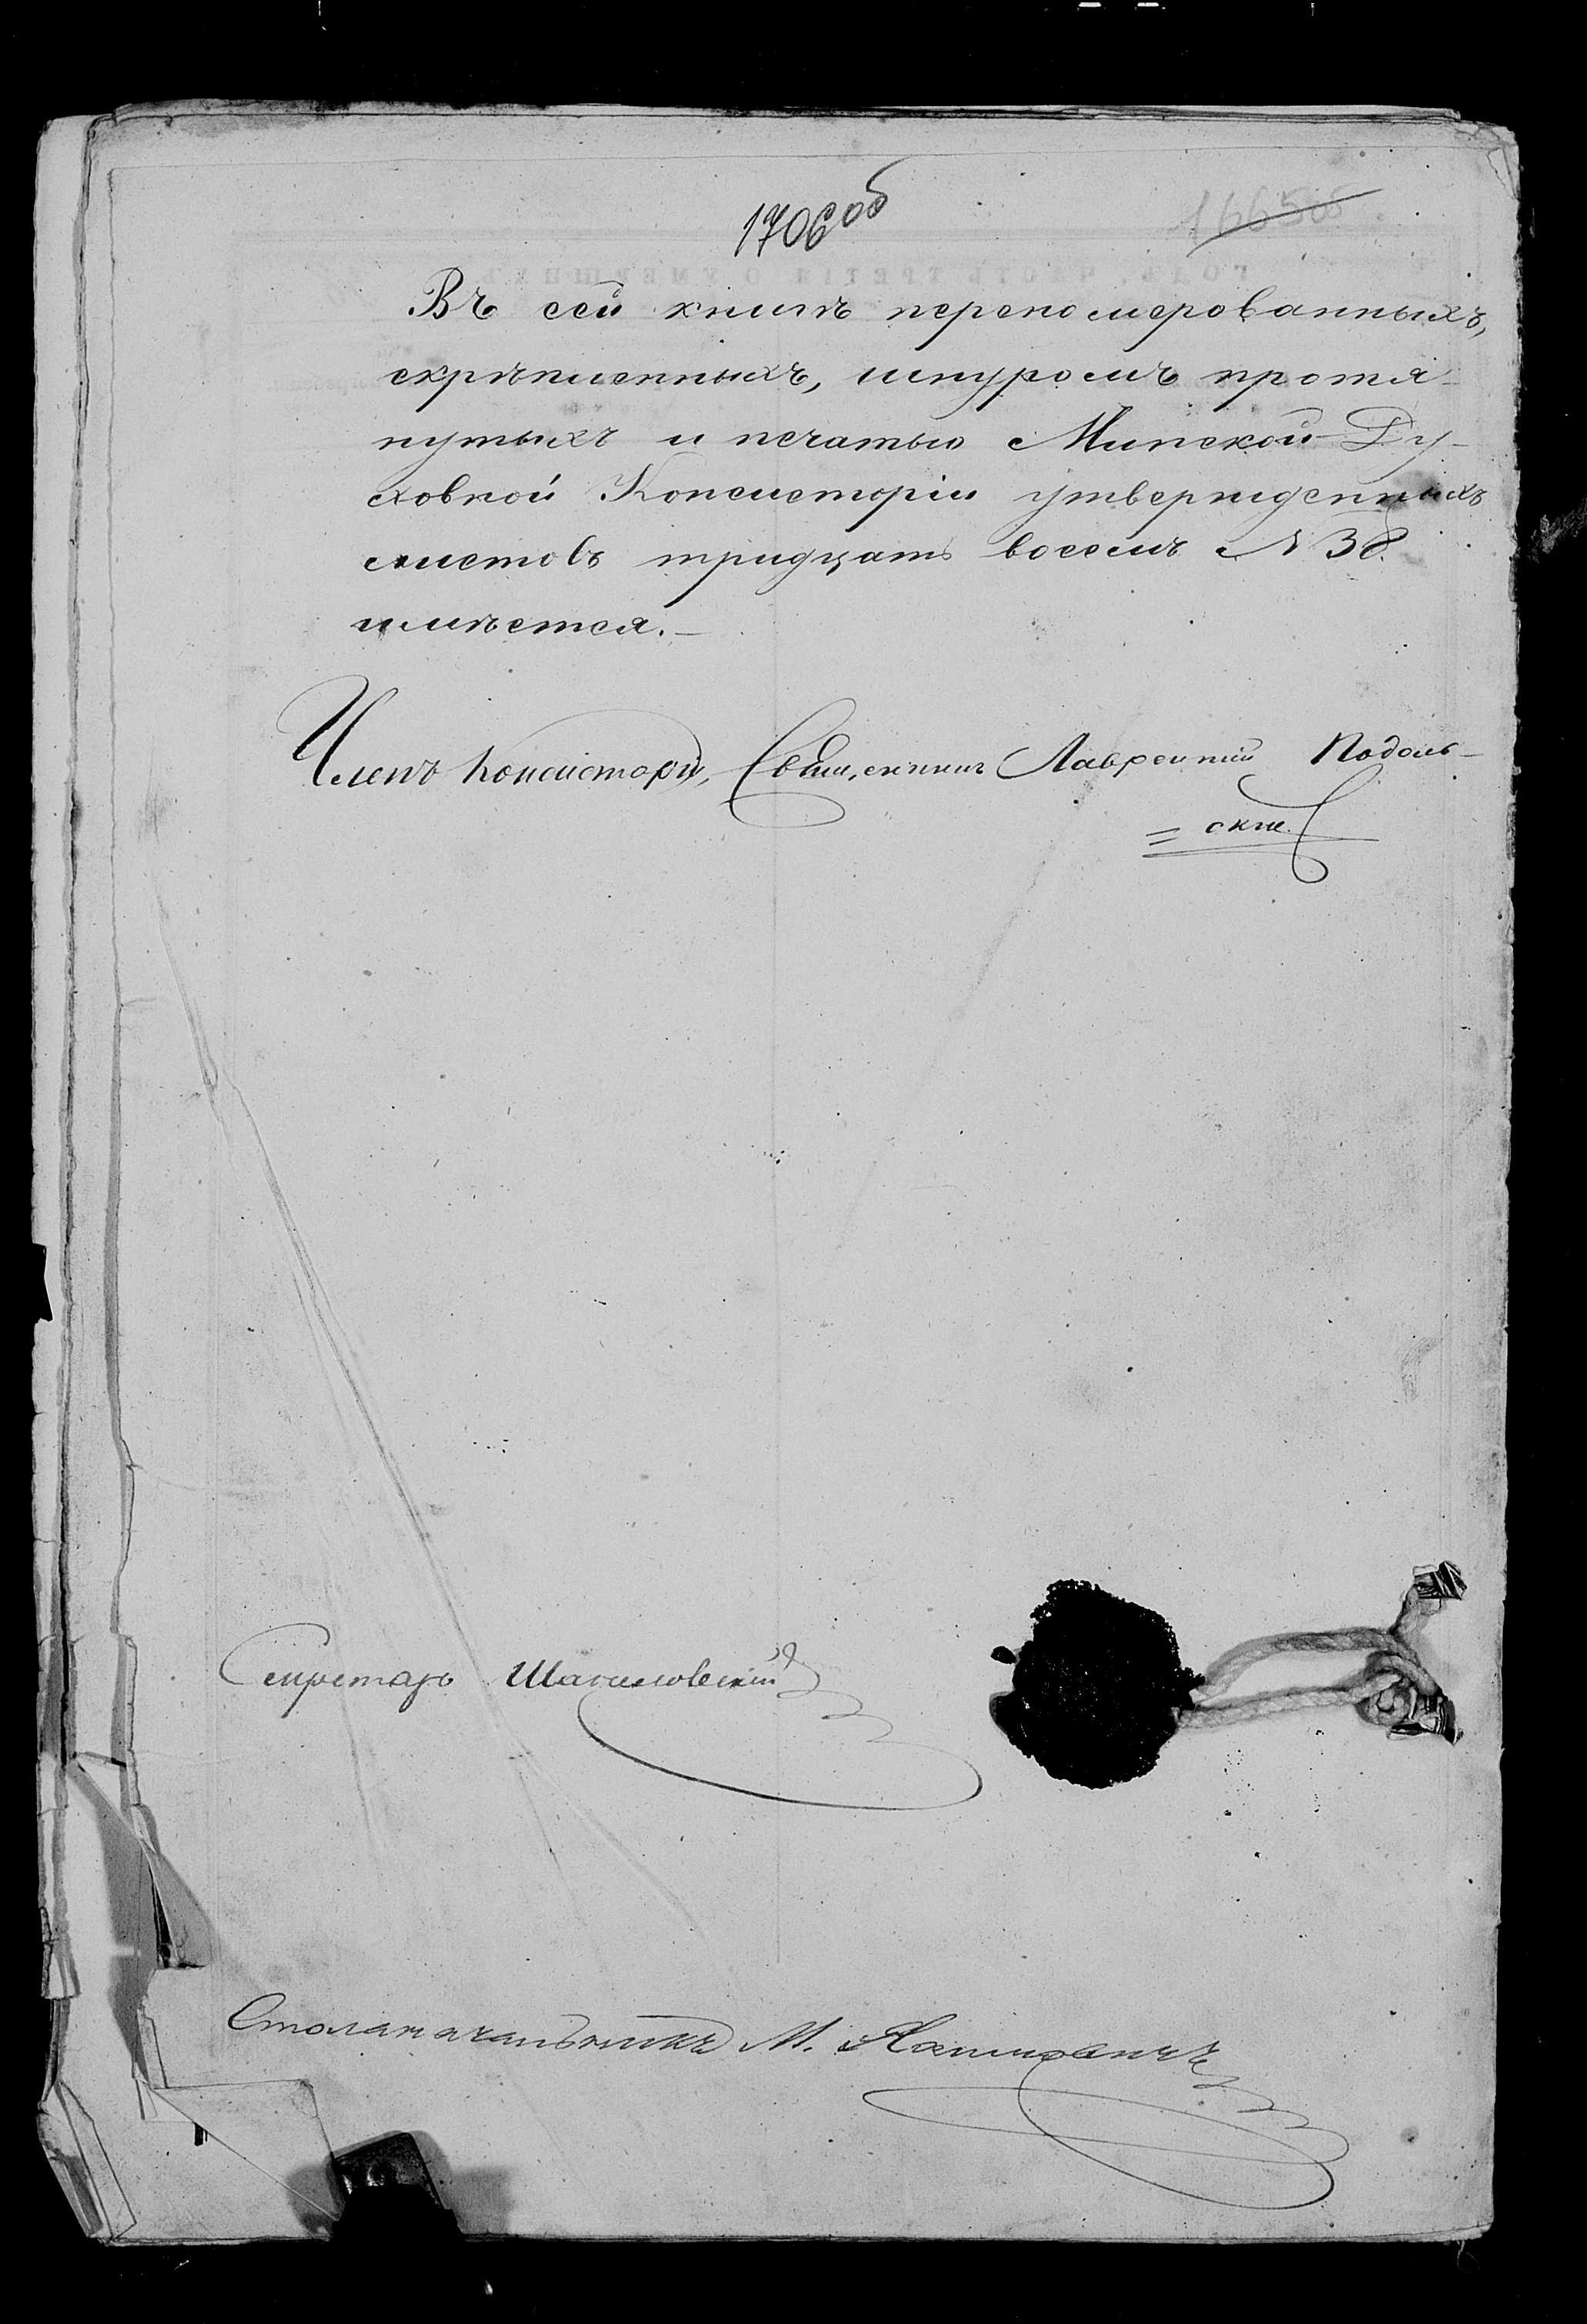 1706об
1665об
Въ сей книгѣ перенумерованныхъ,
скрѣпленныхъ, шнуромъ протя-
нутыхъ и печатью Минской Ду-
ховной Консисторіи утвержденныхъ
листовъ тридцать восемь № 38.
имѣется.—
Членъ Консисторіи, Священникъ Лаврентій Подоль-
= скій.
Секретарь
Столоначальникъ М.